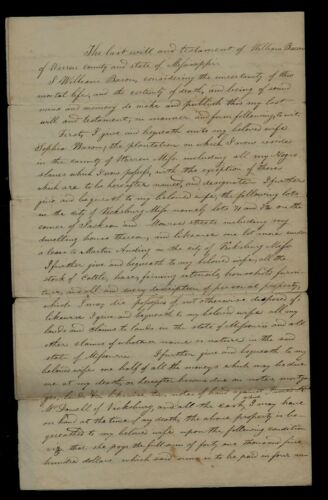 The last will and testament of William Bacon
of Warren county and state of Mississippi
I William Bacon, considering the uncertainty of this
mortal life, and the certainty of death, and being of sound
mind and memory do make and publish this my last
will and testament, in manner and form following, to wit.
Firstly I give and bequeath unto my beloved wife
Sophia Bacon, the plantation on which I now reside
in the county of Warren Miss. including all my Negro
slaves which I now possess, with the exception of those
which are to be hereafter named, and designated. I further
give and bequeath to my beloved wife, the following lots
in the city of Vicksburg Miss. namely lots
corner of Jackson and Monroe streets including my
dwelling house thereon, and likewise one lot more under
a lease to Martin in the city of Vicksburg Miss.
I further give and bequeath to my beloved wife, all the
stock of Cattle, horses, farming utensils, household furni-
ture, and all and every description of personal property,
which I may die possessed of not otherwise disposed of.
likewise I give and bequeath to my beloved wife all my
lands and claims to lands in the state of Missouri and all
other claims of whatever name or nature in the said
state of Missouri. I further give and bequeath to my
beloved wife one half of all the moneys which may be due
me at my death, or hereafter become due on notes, mort-
gages, notes of hand against
McDowell of Vicksburg, and all the cash I may have
on hand at the time of my death, the above property is be-
queathed to my beloved wife upon the following condition
viz that she pays the full sum of forty one thousand five
hundred dollars which said sum is to be paid in four